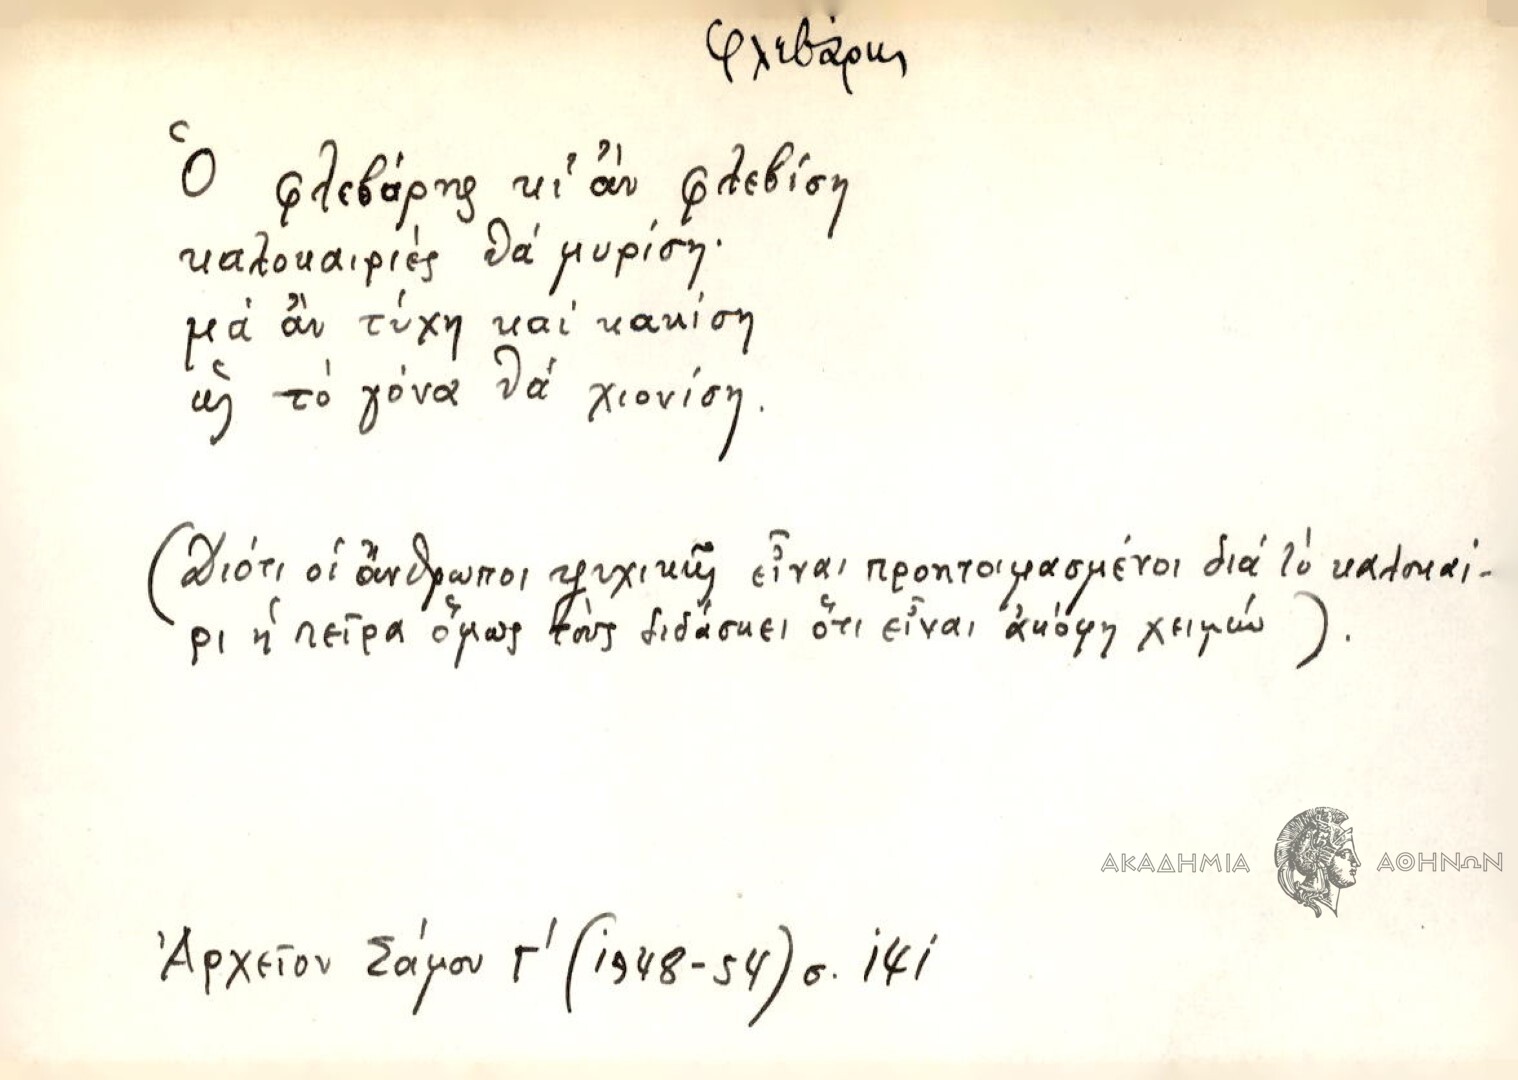 Φλεβάρης
Ὁ φλεβάρης κι' ἄν φλεβίση
καλοκαιριές θά μυρίση·
μά ἄν τύχη καί κακίση
ὡς τό γόνα θά χιονίση.
(Διότι οἱ ἄνθρωποι ψυχικῶς εἶναι προητοιμασμένοι διά τό καλοκαί-
ρι ἡ πεῖρα ὅμως τούς διδάσκει ὅτι εἶναι ἀκόμη χειμών).
ΑΚΑΔΗΜΙΑ ΑΘΗΝΩΝ
Ἀρχεῖον Σάμου Γ' (1948-54) σ. 141